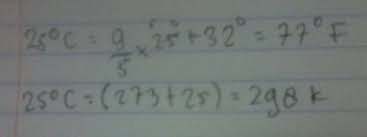 25°C = 9/5 × 25° + 32° = 77°F
25°C = (273+25) = 298 K